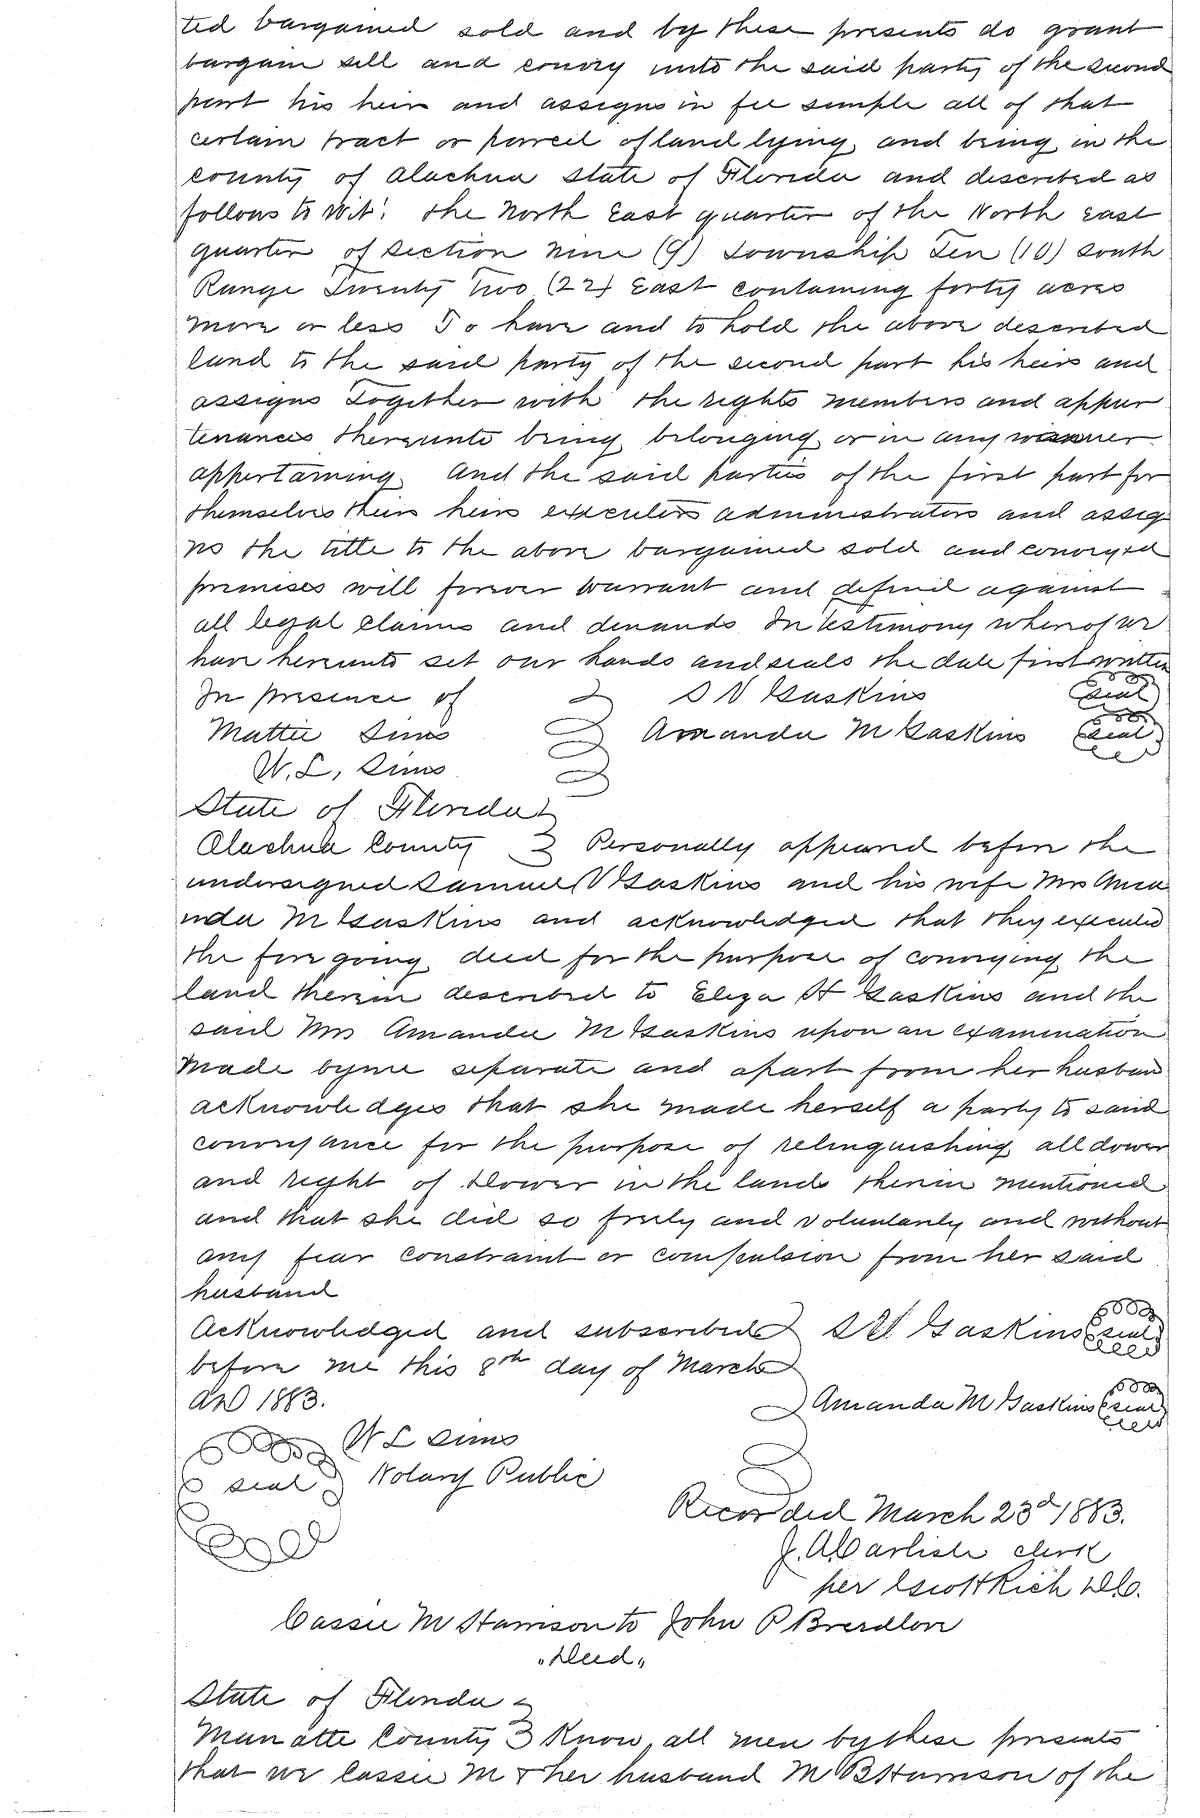 ted bargained sold and by these presents do grant
bargain sell and convey unto the said party of the second
part his heirs and assigns in fee simple all of that
certain tract or parcel of land lying and being in the
county of Alachua State of Florida and described as
follows to Wit: the North East quarter of the North East
quarter of Section Nine (9) Township Ten (10) South
Range Twenty Two (22) East containing forty acres
more or less To have and to hold the above described
land to the said party of the second part his heirs and
assigns Together with the rights members and appur
tenances thereunto being belonging or in any manner
appertaining. And the said parties of the first part for
themselves their heirs executers administrators and assig
ns the title to the above bargained sold and conveyed
premises will forever warrant and defend against
all legal claims and demands In testimony whereof we
have hereunto set our hands and seals the date first written
In presence of S V Gaskins seal
Mattie Sims Amanda M Gaskins seal
W. L. Sims
State of Florida
Alachua County Personally appeared before the
undersigned Samuel V Gaskins and his wife Mrs Ama
nda M Gaskins and acknowledged that they executed
the fore going deed for the purpose of conveying the
land therein described to Eliza H Gaskins and the
said Mrs Amanda M Gaskins upon an examination
made by me separate and apart from her husban
acknowledges that she made herself a party to said
conveyance for the purpose of relinquishing all dower
and right of Dower in the lands therein mentioned
and that she did so freely and voluntarily and without
any fear constraint or compulsion from her said
husband
Acknowledged and subscribed S V Gaskins seal
before me this 8th day of March
AD 1883. Amanda M Gaskins seal
W L Sims
seal Notary Public
Recorded March 23d 1883.
J. A. Carlisle clerk
per Rich D.C.
Cassie M Harrison to John P Breedlove
"Deed"
State of Florida
Manatte County Know all men by these presents
that we Cassie M & her husband M B Harrison of the